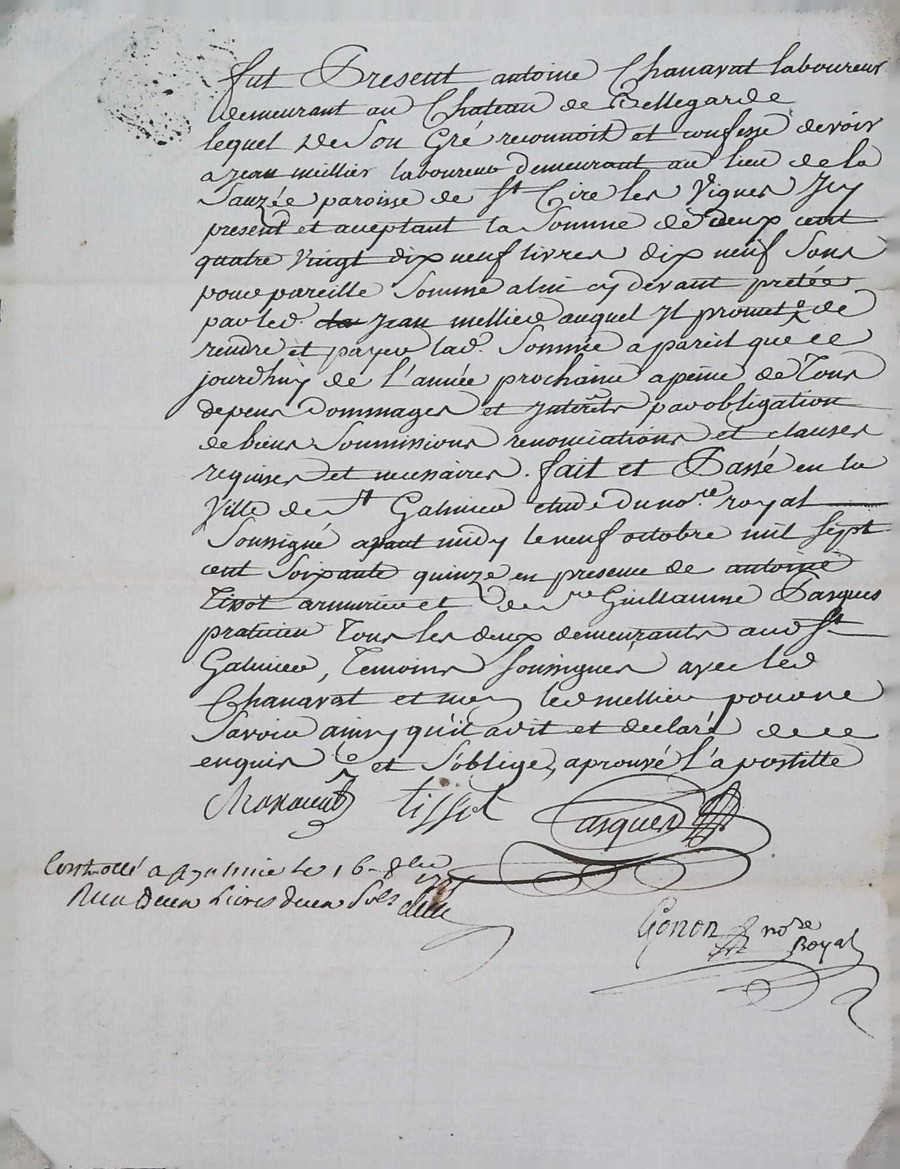 fut Present antoine Chanavat laboureur
demeurant au Chateau de Bellegarde
lequel de son Gré reconnoit et confesse devoir
a jean mellier laboureur demeurant au lieu de la
Sauzée paroisse de St Cire les Vignes Icy
present et aceptant la Somme de deux cent
quatre Vingt dix neuf livres dix neuf sous
pour pareille Somme a lui cy devant pretée
par led. jean mellier auquel Il promet de
rendre et payer lad. Somme a pareil que ce
jourdhuy de l'année prochaine a peine de Tous
depens Dommages et Interêts par obligation
de biens Soumissions renonciations et clauses
requises et necessaires. fait et Passé en la
Ville de St Galmier etude du nore. royal
Soussigné avant midy le neuf octobre mil sept
cent Soixante quinze en presence de antoine
Tissot armurier et de sre Guillaume Pasques
praticien Tous les deux demeurants aud St
Galmier, Temoins Soussignés avec led
Chanavat et non led mellier pour ne
Savoir ainsy qu'il a dit et declaré de ce
enquis et s'oblige, aprouvé l'apostille
Chanavat tissot Pasques
Controllé a St galmie le 16 8bre 1775
Reçu Deux Livres deux Sols
Gonon nore
Royal